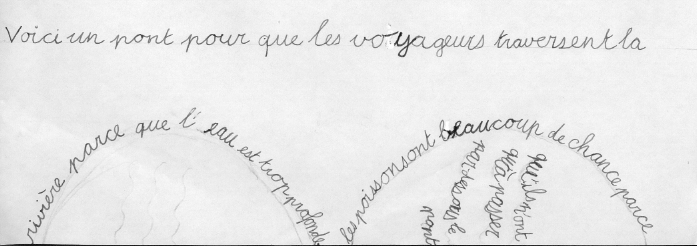 Voici un pont pour que les voyageurs traversent la
rivière parce que l'eau est trop profonde
les poissons ont beaucoup de chance parce
qu'ils n'ont
qu'à passer
par dessous le
pont